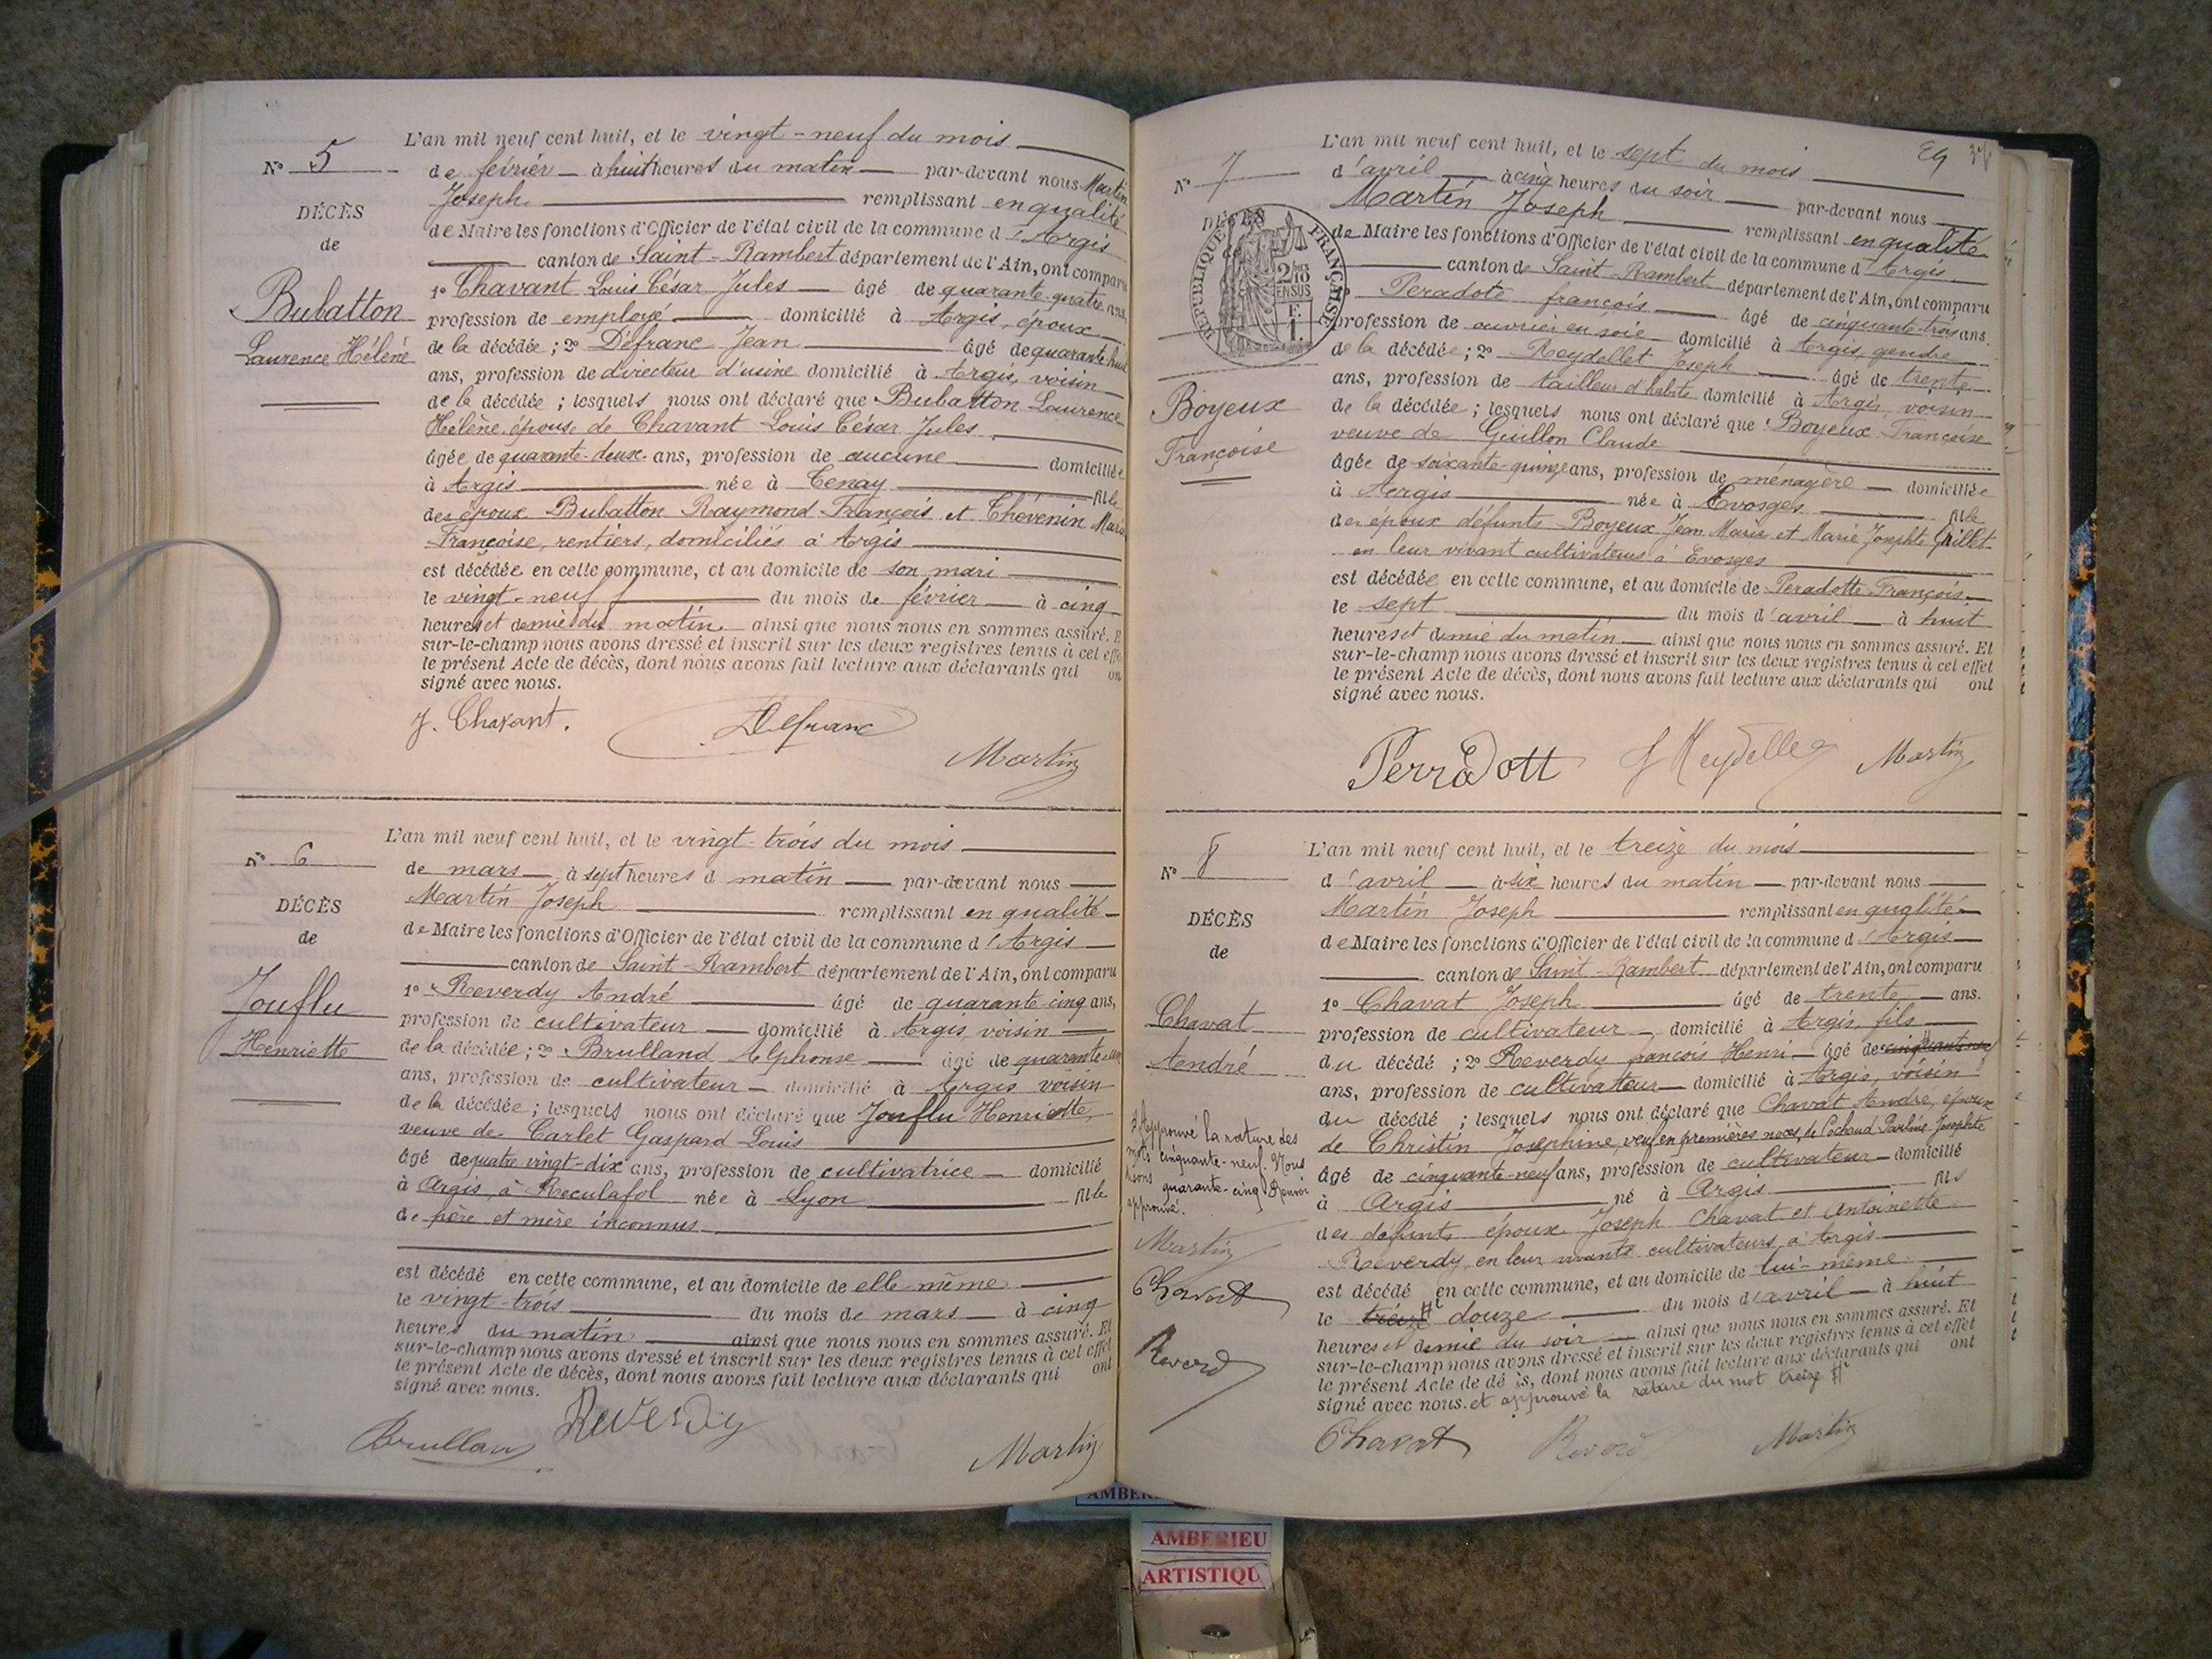 L'an mil neuf cent huit, et le vingt-neuf du mois
N° 5
de février à huit heures du matin par-devant nous Martin
Joseph remplissant en qualité
DÉCÈS
de Maire les fonctions d'Officier de l'état civil de la commune d'Argis
de
canton de Saint-Rambert département de l'Ain, ont comparu
1° Chavant Louis César Jules âgé de quarante-quatre ans,
Bubatton
profession de employé domicilié à Argis, époux
Laurence Hélène
de la décédée ; 2° Défranc Jean âgé de quarante huit
ans, profession de directeur d'usine domicilié à Argis, voisin
de la décédée ; lesquels nous ont déclaré que Bubatton Laurence
Hélène, épouse de Chavant Louis César Jules
âgée de quarante-deux ans, profession de aucune domiciliée
à Argis née à Tenay fille
des époux Bubatton Raymond François et Thévenin Marie
Françoise, rentiers, domiciliés à Argis
est décédée en cette commune, et au domicile de son mari
le vingt-neuf du mois de février à cinq
heures et demie du matin ainsi que nous nous en sommes assuré. E
sur-le-champ nous avons dressé et inscrit sur les deux registres tenus à cet effe
le présent Acte de décès, dont nous avons fait lecture aux déclarants qui on
signé avec nous.
J. Chavant. Defranc
Martin
L'an mil neuf cent huit, et le vingt-trois du mois
N° 6
de mars à sept heures d matin par-devant nous
DÉCÈS
Martin Joseph remplissant en qualité
de
de Maire les fonctions d'Officier de l'état civil de la commune d'Argis
canton de Saint-Rambert département de l'Ain, ont comparu
Jouflu
1° Reverdy André âgé de quarante-cinq ans,
profession de cultivateur domicilié à Argis, voisin
Henriette
de la décédée ; 2° Brulland Alphonse âgé de quarante-un
ans, profession de cultivateur domicilié à Argis voisin
de la décédée ; lesquels nous ont déclaré que Jouflu Henriette,
veuve de Carlet Gaspard Louis
âgé de quatre vingt-dix ans, profession de cultivatrice domicilié
à Argis, à Reculafol née à Lyon fille
de père et mère inconnus
est décédé en cette commune, et au domicile de elle-même
le vingt-trois du mois de mars à cinq
heures du matin ainsi que nous nous en sommes assuré. Et
sur-le-champ nous avons dressé et inscrit sur les deux registres tenus à cet effet
le présent Acte de décès, dont nous avons fait lecture aux déclarants qui ont
signé avec nous.
Brullan Reverdy Martin
L'an mil neuf cent huit, et le sept du mois
N° 7
d'avril à cinq heures du soir par-devant nous
Martin Joseph remplissant en qualité
DÉCÈS
RÉPUBLIQUE FRANÇAISE
2/10 EN SUS
de Maire les fonctions d'Officier de l'état civil de la commune d'Argis
canton de Saint-Rambert département de l'Ain, ont comparu
Peradote françois âgé de cinquante-trois ans.
profession de ouvrier en soie domicilié à Argis, gendre
de la décédée ; 2° Reydellet Joseph âgé de trente
ans, profession de tailleur d'habits domicilié à Argis, voisin
Boyeux
Françoise
de la décédée ; lesquels nous ont déclaré que Boyeux Françoise
veuve de Guillon Claude
âgée de soixante-quinze ans, profession de ménagère domiciliée
à Argis née à Evosges fille
des époux défunts Boyeux Jean Marie et Marie Josephte Grillet
en leur vivant cultivateurs à Evosges
est décédée en cette commune, et au domicile de Peradotte François
le sept du mois d'avril à huit
heures et demie du matin ainsi que nous nous en sommes assuré. Et
sur-le-champ nous avons dressé et inscrit sur les deux registres tenus à cet effet
le présent Acte de décès, dont nous avons fait lecture aux déclarants qui ont
signé avec nous.
Perradott J Reydellet Martin
L'an mil neuf cent huit, et le treize du mois
N° 8
d'avril à six heures du matin par-devant nous
DÉCÈS
Martin Joseph remplissant en qualité
de
de Maire les fonctions d'Officier de l'état civil de la commune d'Argis
canton de Saint-Rambert département de l'Ain, ont comparu
Chavat
1° Chavat Joseph âgé de trente ans.
profession de cultivateur domicilié à Argis, fils
André
du décédé ; 2° Reverdy françois Henri âgé de cinquante-neuf
ans, profession de cultivateur domicilié à Argis, voisin
du décédé ; lesquels nous ont déclaré que Chavat André, époux
de Christin Josephine, veuf en premières noces, de Cochaud Pauline Josephte
âgé de cinquante-neuf ans, profession de cultivateur domicilié
à Argis né à Argis fils
des défunts époux Joseph Chavat et Antoinette
Reverdy, en leur vivants cultivateurs à Argis
est décédé en cette commune, et au domicile de lui-même
le treize douze du mois d'avril à huit
heures et demie du soir ainsi que nous nous en sommes assuré. Et
sur-le-champ nous avons dressé et inscrit sur les deux registres tenus à cet effet
le présent Acte de décès, dont nous avons fait lecture aux déclarants qui ont
signé avec nous. et approuvé la rature du mot treize
Approuvé la rature des
mots cinquante-neuf. Nous
disons quarante-cinq Renvoi
approuvé.
Martin
Chavat
Reverd
Chavat Reverd Martin
AMBERIEU
ARTISTIQU